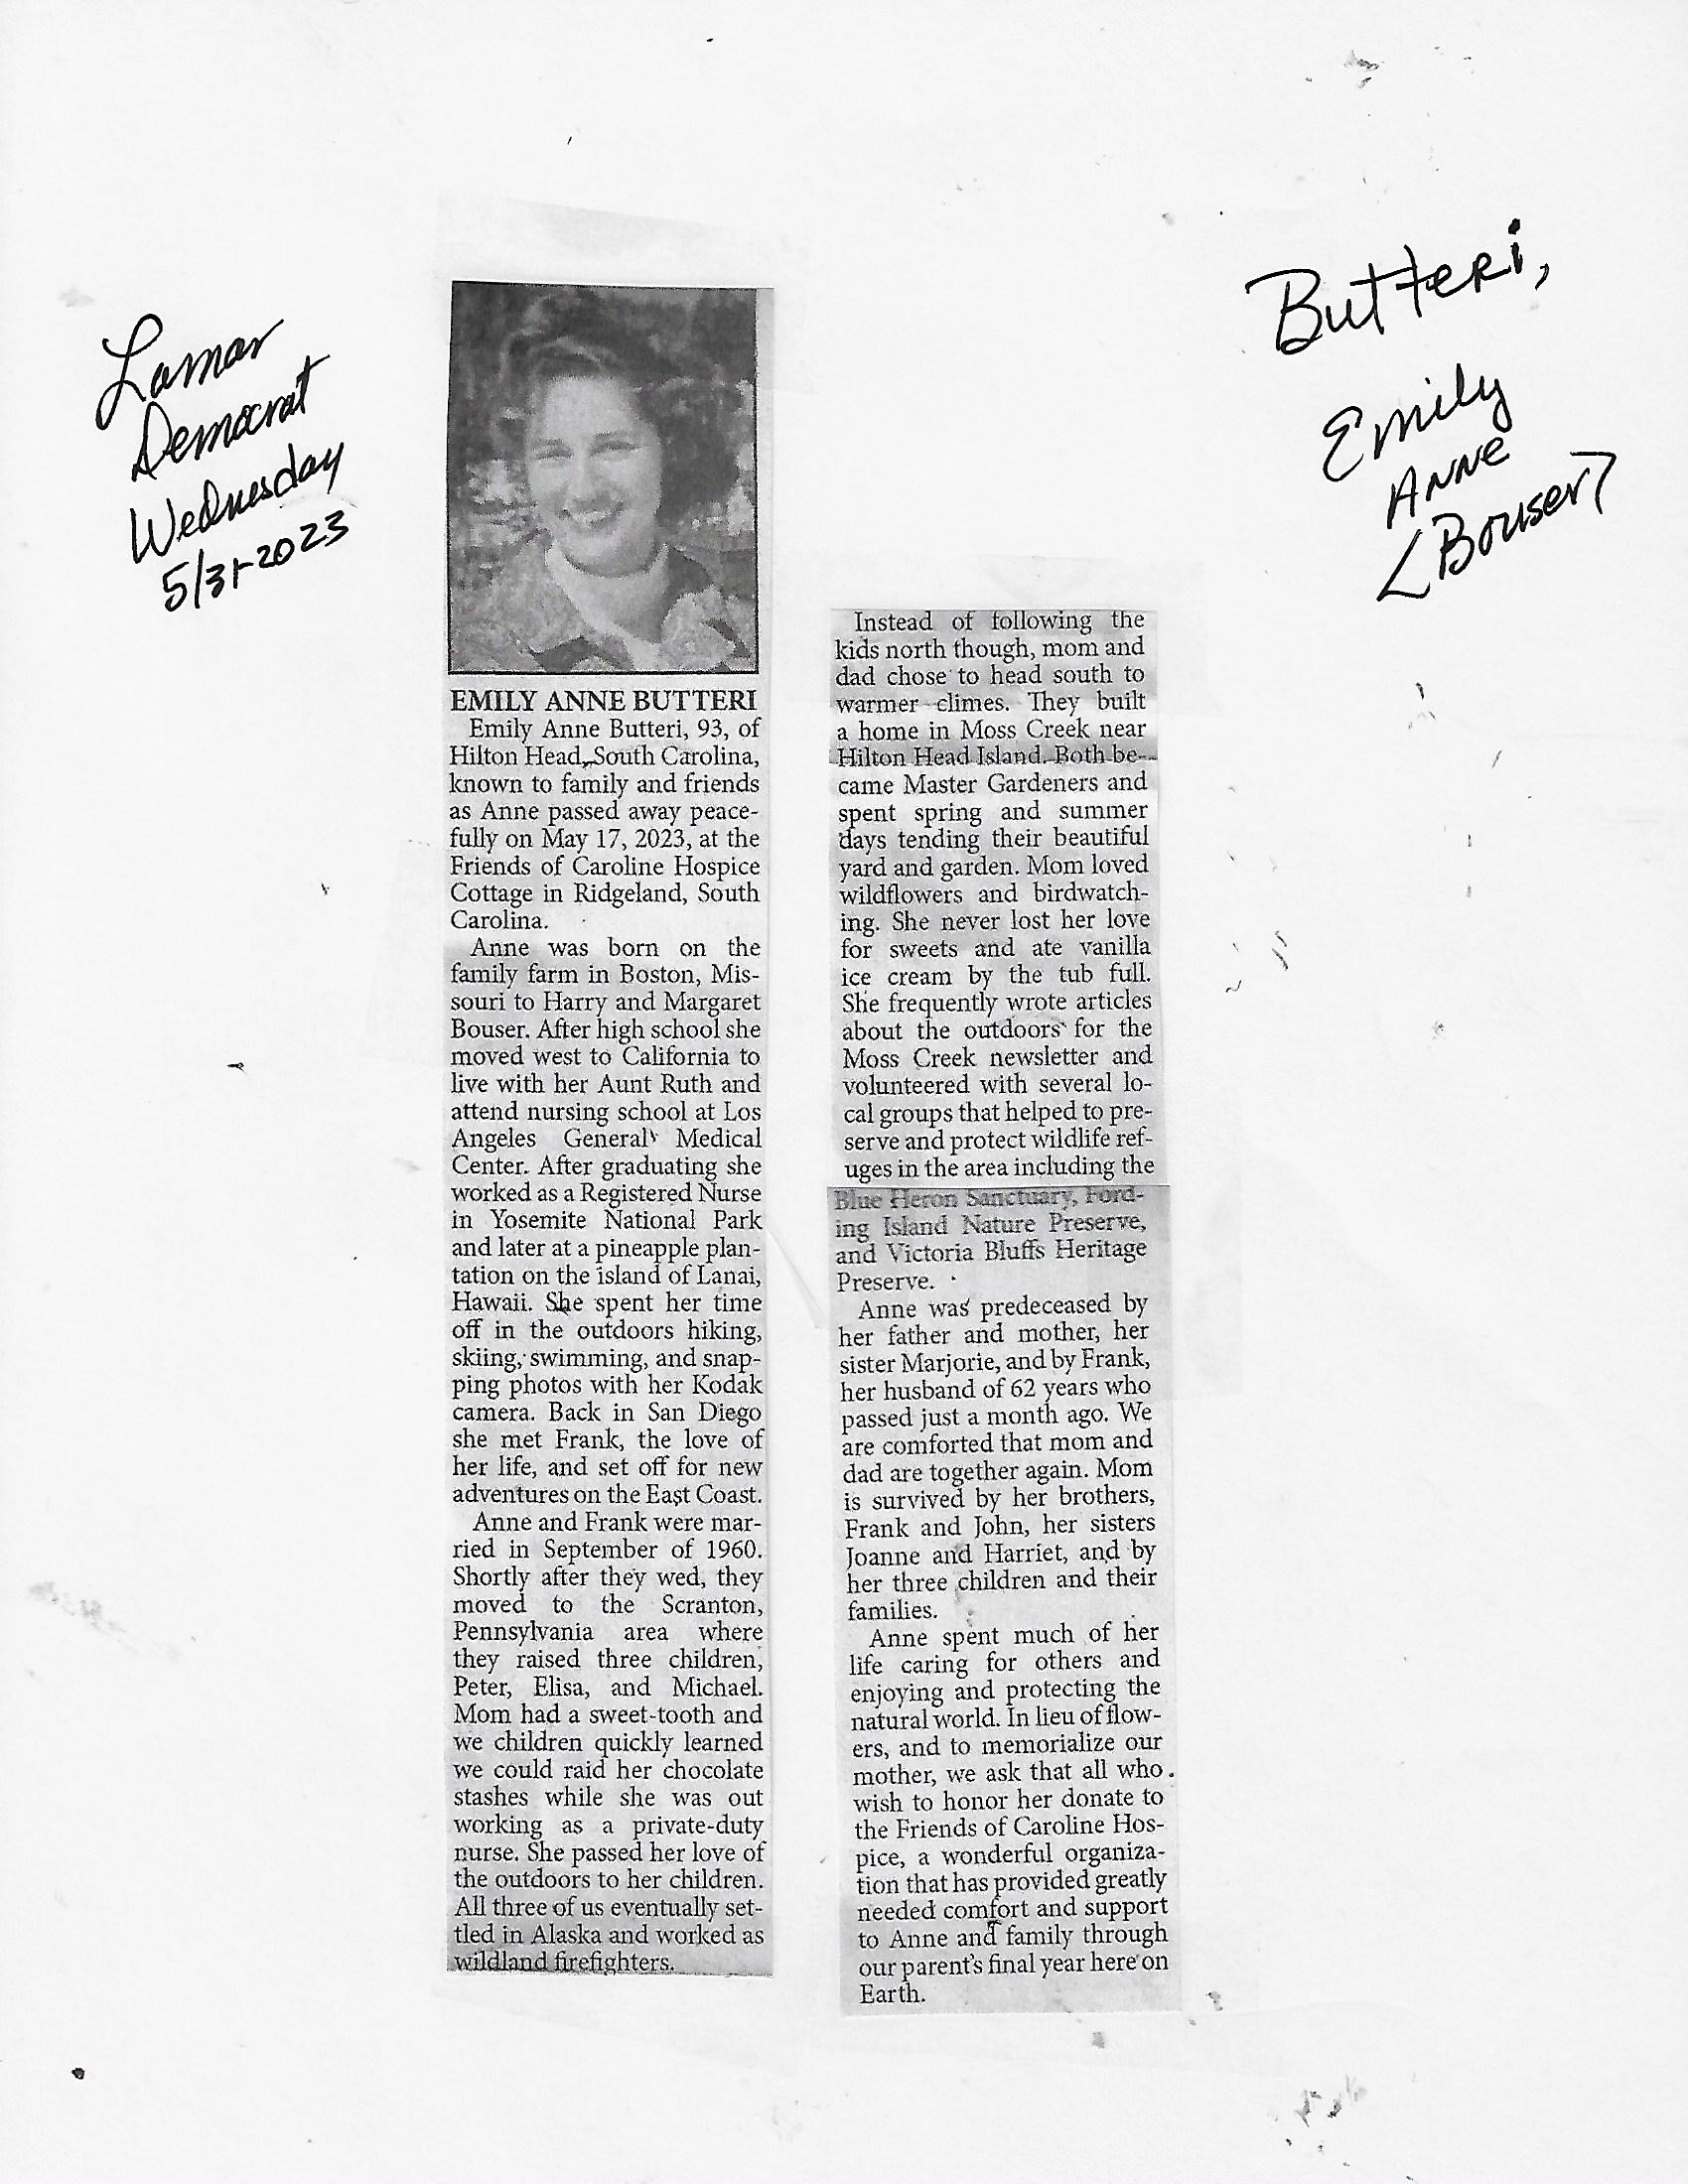 Lamar
Democrat
Wednesday
5/31-2023
Butteri,
Emily
Anne
<Bouser>
EMILY ANNE BUTTERI
Emily Anne Butteri, 93, of
Hilton Head, South Carolina,
known to family and friends
as Anne passed away peace-
fully on May 17, 2023, at the
Friends of Caroline Hospice
Cottage in Ridgeland, South
Carolina.
Anne was born on the
family farm in Boston, Mis-
souri to Harry and Margaret
Bouser. After high school she
moved west to California to
live with her Aunt Ruth and
attend nursing school at Los
Angeles General Medical
Center. After graduating she
worked as a Registered Nurse
in Yosemite National Park
and later at a pineapple plan-
tation on the island of Lanai,
Hawaii. She spent her time
off in the outdoors hiking,
skiing, swimming, and snap-
ping photos with her Kodak
camera. Back in San Diego
she met Frank, the love of
her life, and set off for new
adventures on the East Coast.
Anne and Frank were mar-
ried in September of 1960.
Shortly after they wed, they
moved to the Scranton,
Pennsylvania area where
they raised three children,
Peter, Elisa, and Michael.
Mom had a sweet-tooth and
we children quickly learned
we could raid her chocolate
stashes while she was out
working as a private-duty
nurse. She passed her love of
the outdoors to her children.
All three of us eventually set-
tled in Alaska and worked as
wildland firefighters.
Instead of following the
kids north though, mom and
dad chose to head south to
warmer climes. They built
a home in Moss Creek near
Hilton Head Island. Both be-
came Master Gardeners and
spent spring and summer
days tending their beautiful
yard and garden. Mom loved
wildflowers and birdwatch-
ing. She never lost her love
for sweets and ate vanilla
ice cream by the tub full.
She frequently wrote articles
about the outdoors for the
Moss Creek newsletter and
volunteered with several lo-
cal groups that helped to pre-
serve and protect wildlife ref-
uges in the area including the
Blue Heron Sanctuary, Ford-
ing Island Nature Preserve,
and Victoria Bluffs Heritage
Preserve.
Anne was predeceased by
her father and mother, her
sister Marjorie, and by Frank,
her husband of 62 years who
passed just a month ago. We
are comforted that mom and
dad are together again. Mom
is survived by her brothers,
Frank and John, her sisters
Joanne and Harriet, and by
her three children and their
families.
Anne spent much of her
life caring for others and
enjoying and protecting the
natural world. In lieu of flow-
ers, and to memorialize our
mother, we ask that all who
wish to honor her donate to
the Friends of Caroline Hos-
pice, a wonderful organiza-
tion that has provided greatly
needed comfort and support
to Anne and family through
our parent's final year here on
Earth.